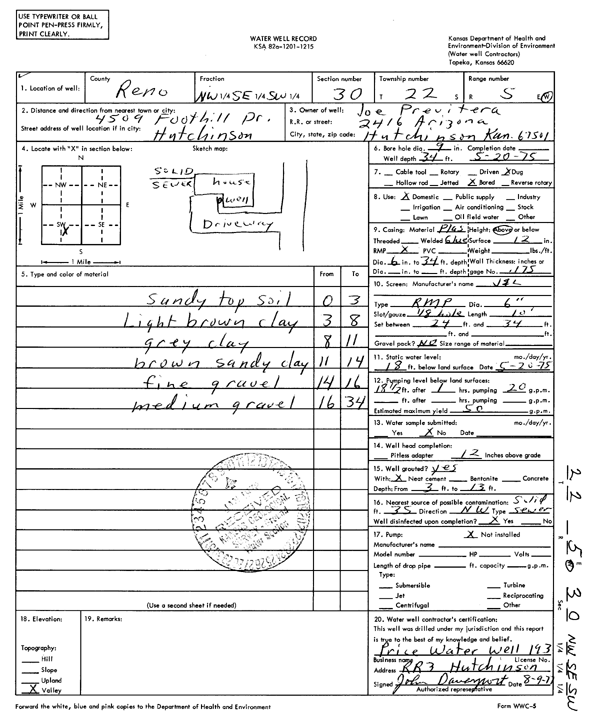 USE TYPEWRITER OR BALL
POINT PEN-PRESS FIRMLY,
PRINT CLEARLY.
WATER WELL RECORD
KSA 82a-1201-1215
Kansas Department of Health and
Environment-Division of Environment
(Water well Contractors)
Topeka, Kansas 66620
1. Location of well:
County
Reno
Fraction
NW 1/4 SE 1/4 SW 1/4
Section number
30
Township number
T 22 S
Range number
R 5 E/W
2. Distance and direction from nearest town or city:
4509 Foothill Dr.
Street address of well location if in city:
Hutchinson
3. Owner of well: Joe Previtera
R.R. or street: 2416 Arizona
City, state, zip code: Hutchinson Kan. 67501
4. Locate with "X" in section below:
Sketch map:
N
NW NE
W E
SW SE
X
S
1 Mile
1 Mile
SOLID
SEWER
house
well
Driveway
6. Bore hole dia. 9 in. Completion date
Well depth 34 ft. 5-20-75
7. Cable tool Rotary Driven X Dug
Hollow rod Jetted X Bored Reverse rotary
8. Use: X Domestic Public supply Industry
Irrigation Air conditioning Stock
Lawn Oil field water Other
9. Casing: Material Plas Height: Above or below
Threaded Welded Glue Surface 12 in.
RMP X PVC Weight lbs./ft.
Dia. 6 in. to 34 ft. depth Wall Thickness: inches or
Dia. in. to ft. depth gage No. .175
10. Screen: Manufacturer's name
Type RMP Dia. 6"
Slot/gauze 1/8 hole Length 10'
Set between 24 ft. and 34 ft.
ft. and ft.
Gravel pack? No Size range of material
11. Static water level: mo./day/yr.
18 ft. below land surface Date 5-20-75
12. Pumping level below land surfaces:
18 1/2 ft. after 1 hrs. pumping 20 g.p.m.
ft. after hrs. pumping g.p.m.
Estimated maximum yield 50 g.p.m.
13. Water sample submitted: mo./day/yr.
Yes X No Date
14. Well head completion:
Pitless adapter 12 Inches above grade
15. Well grouted? yes
With: X Neat cement Bentonite Concrete
Depth: From 3 ft. to 13 ft.
16. Nearest source of possible contamination: Solid
ft. 35 Direction NW Type sewer
Well disinfected upon completion? X Yes No
17. Pump: X Not installed
Manufacturer's name
Model number HP Volts
Length of drop pipe ft. capacity g.p.m.
Type:
Submersible Turbine
Jet Reciprocating
Centrifugal Other
5. Type and color of material From To
Sandy top soil 0 3
Light brown clay 3 8
grey clay 8 11
brown sandy clay 11 14
fine gravel 14 16
medium gravel 16 34
RECEIVED
(Use a second sheet if needed)
18. Elevation:
Topography:
Hill
Slope
Upland
X Valley
19. Remarks:
20. Water well contractor's certification:
This well was drilled under my jurisdiction and this report
is true to the best of my knowledge and belief.
Price Water Well 193
Business name License No.
Address RR3 Hutchinson
Signed John Davenport Date 8-9-77
Authorized representative
Forward the white, blue and pink copies to the Department of Health and Environment
Form WWC-5
22 - 5 W 30 NW SE SW
T R E W Sec 1/4 1/4 1/4